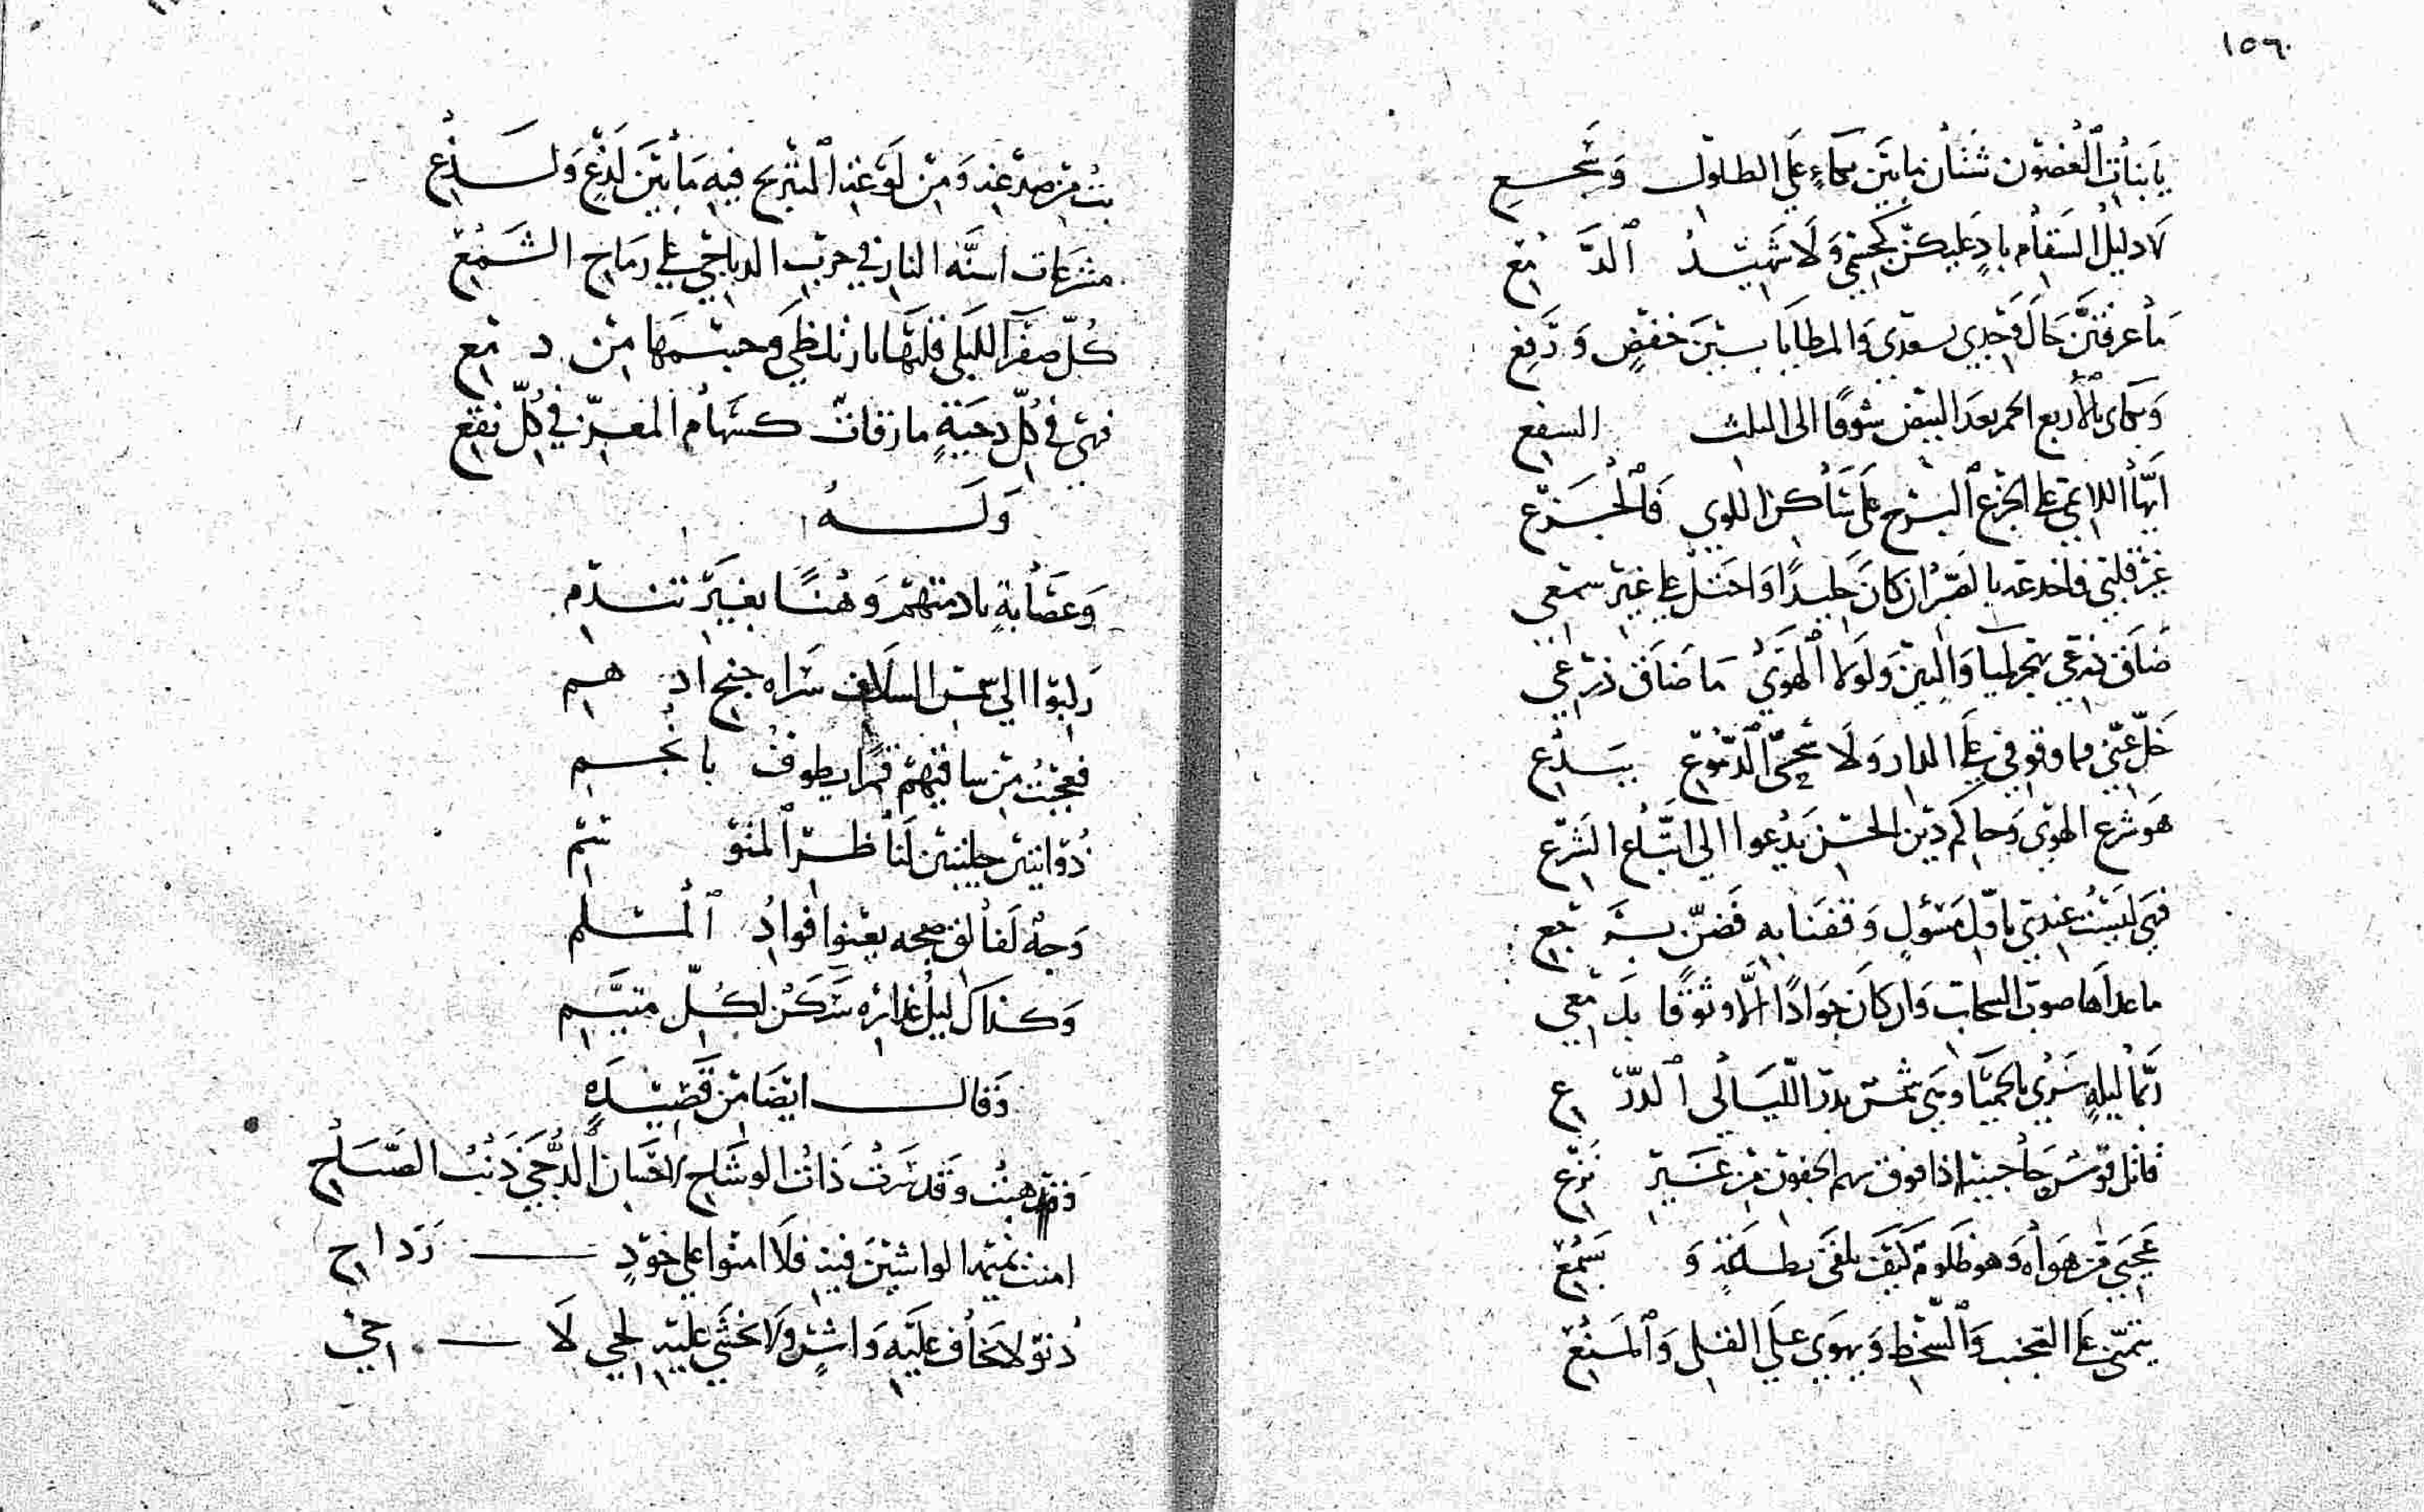 ١٥٦
يا بنات الغصون شتان ما بين بكاءٍ على الطلول وسجع
لا دليل السقام بادٍ عليكن كجسمي ولا شهيد الدمع
ما عرفتن حال وجدي بسعدي والمطايا بين خفضٍ ورفع
وبكاى بالأربع الحمر بعد البيض شوقًا الى الثلث السفع
ايها اللائمي على الجزع البرح على ساكن اللوى فالجزع
غر قلبي فاخدعه بالصبر ان كان جليدًا واحتل على غير سمعي
ضاق ذرعي بهجر لميا والبين ولولا الهوى ما ضاق ذرعي
خل عني فما وقوفي على الدار ولا سحي الدموع ببدع
هو شرع الهوى وحاكم دين الحسن يدعوا الى اتباع الشرع
فهي ليست عندي باول مسؤلٍ وقفنا به فضن برجع
ما عداها صوب السحاب وان كان جوادًا الا وثوقًا بدمعي
ربما ليلةٍ سرى بالحميا وهي شمس بدر الليالي الدرع
قاتل قوس حاجبيه اذا فوق سهم الجفون من غير نزع
عجبي من هواه وهو ظلوم كيف يلقى بطاعةٍ وسمع
يتمنى على التجنب والسخط ويهوى على القلى والمنع
بت من صدغه ومن لوعة التبريح فيه ما بين لدغ ولذع
مشرعات اسنة النار في حرب الدياجي على رماح الشمع
كل صفرآ لليلى قلبها نار تلظى وجسمها من دمع
فهي في كل دجنةٍ مارقات كسهام المعز في كل نقع
وله
وعصابةٍ نادمتهم وهنًا بغير تندم
دلبوا الى شمس السلاف سراه جنح ادهم
فعجبت من ساقيهم قمرا يطوف بانجم
ذؤابتين جليتين لناظر المتوسم
وجه لفالق صبحه يعنوا فواد المسلم
وكذاك ليل غدائره سكن لكل متيم
وقال ايضا من قصيده
وقد هبت وقد سرت ذات الوشاح لاخفان الدجى ذنب الصباح
امنت نميم الواشين فيه فلا امنوا على خودٍ رداح
دنو لا نخاف عليه واشٍ ولا نخشى عليه لحي لاحي